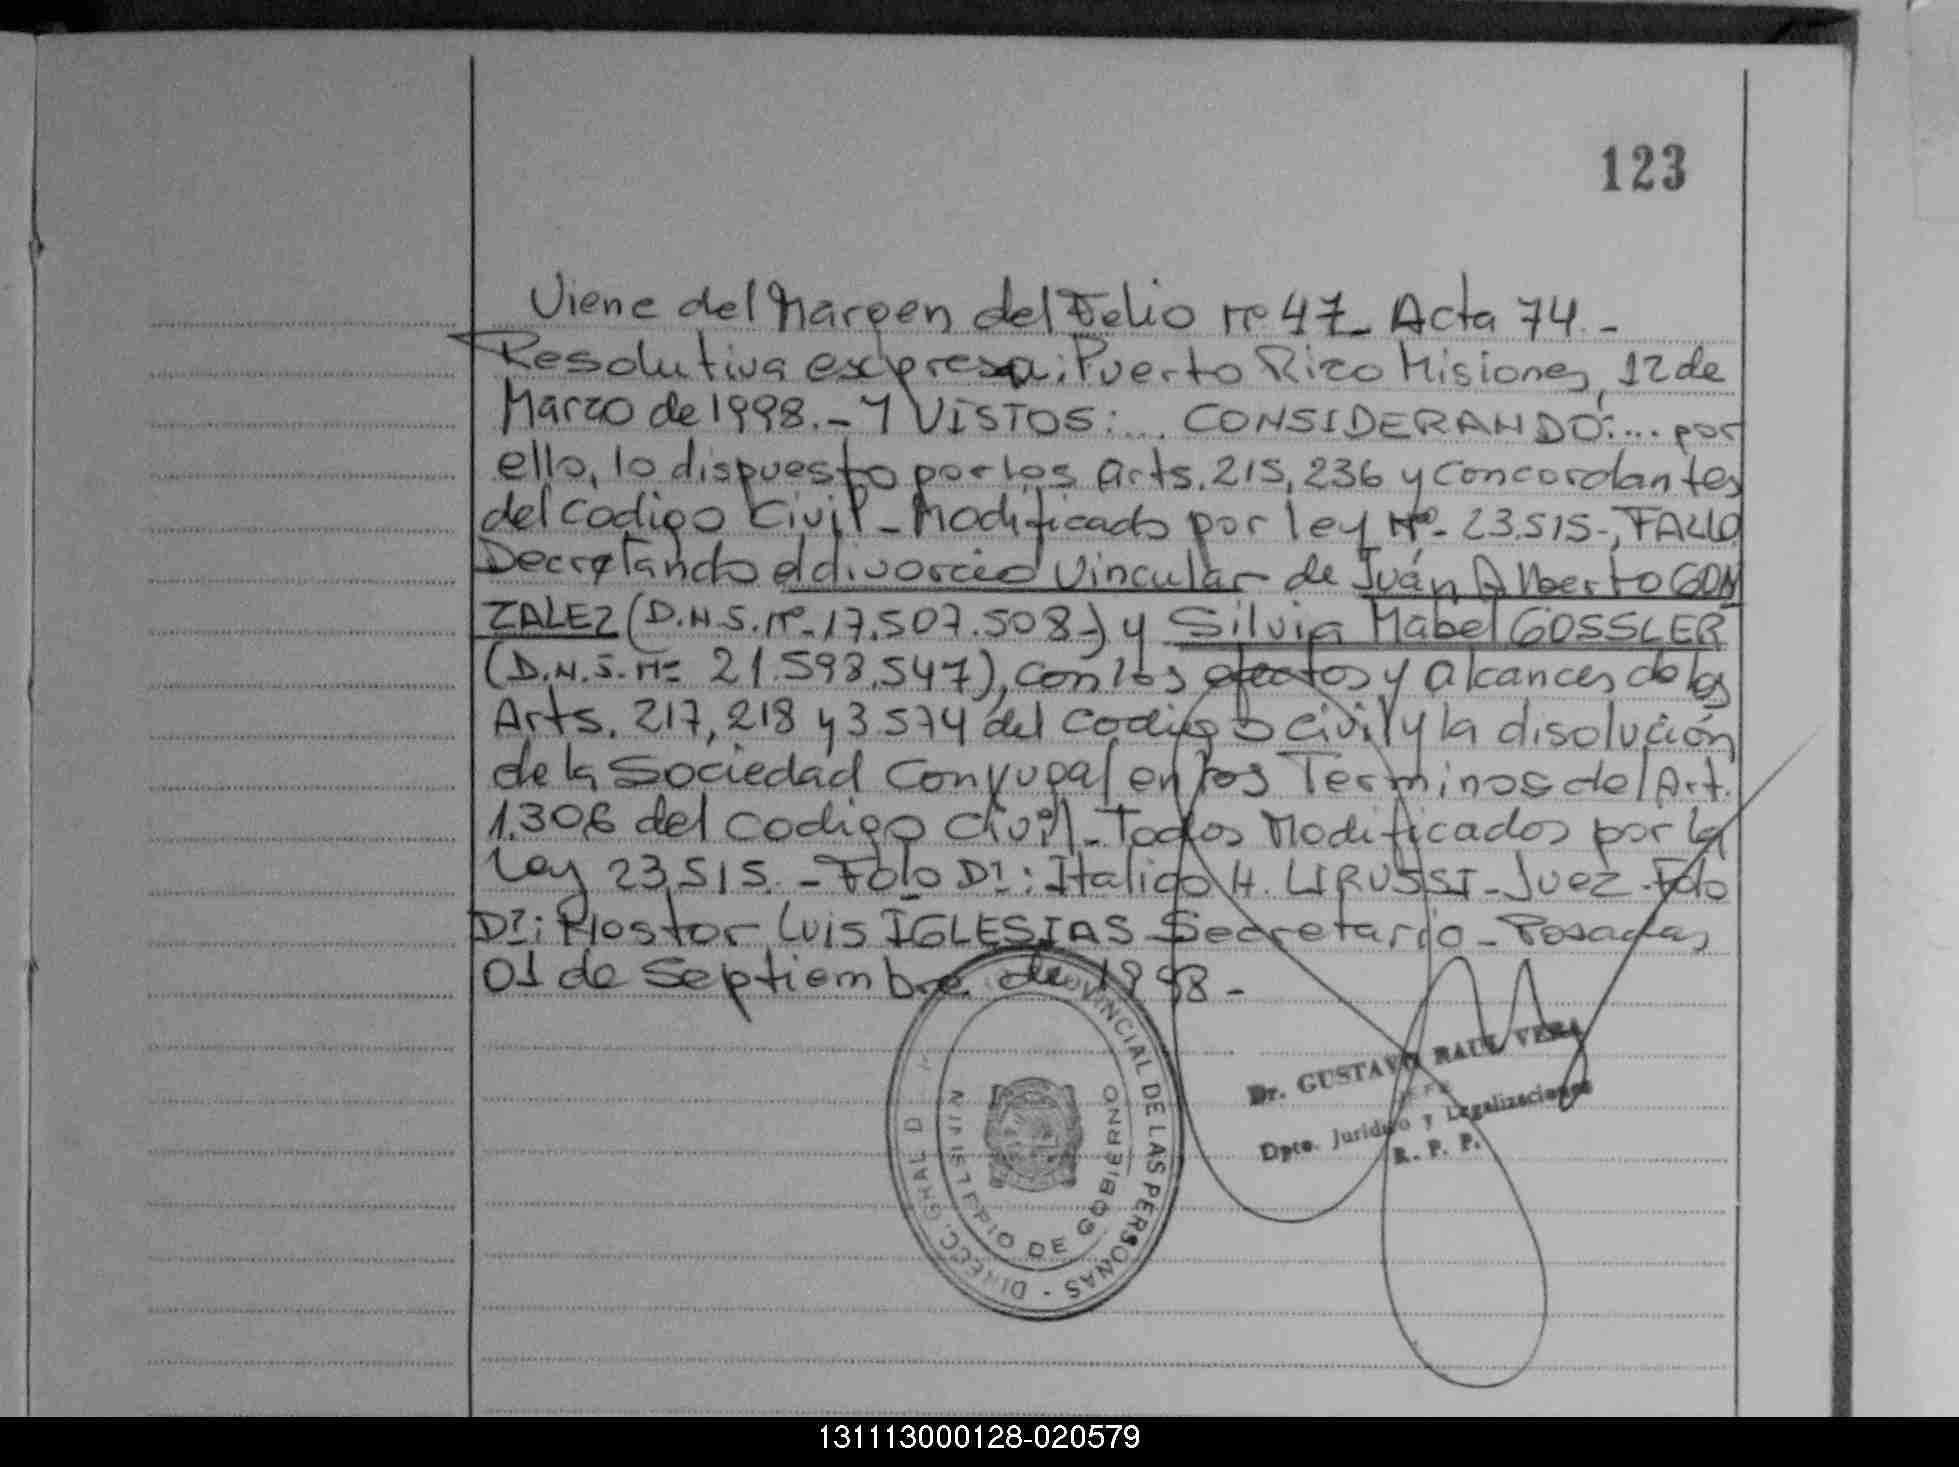 123
Viene del Margen del Folio nº 47- Acta 74.-
Resolutiva expresa: Puerto Rico Misiones, 12 de
Marzo de 1998.- Y VISTOS:... CONSIDERANDO:... por
ello, lo dispuesto por los Arts. 215, 236 y concordantes
del Codigo Civil - Modificado por ley Nº- 23.515-, FALLO
Decretando el divorcio vincular de Juán Alberto GON
ZALEZ (D.N.I. nº- 17.507.508-) y Silvia Mabel GOSSLER
(D.N.I. Nº 21.598.547), con los efectos y alcances de los
Arts. 217, 218 y 3.574 del Codigo Civil y la disolución
de la Sociedad Conyugal en los Terminos del Art.
1.306 del Codigo Civil - Todos Modificados por la
Ley 23.515.- Fdo Dr: Italico H. LIRUSSI - Juez - Fdo
Dr: Nestor Luis IGLESIAS Secretario - Posadas,
01 de Septiembre de 1998.-
Dr. GUSTAVO RAUL VERA
JEFE
Dpto. Juridico y Legalizaciones
R. P. P.
DIRECC. GRAL. D PROVINCIAL DE LAS PERSONAS -
MINISTERIO DE GOBIERNO
131113000128-020579